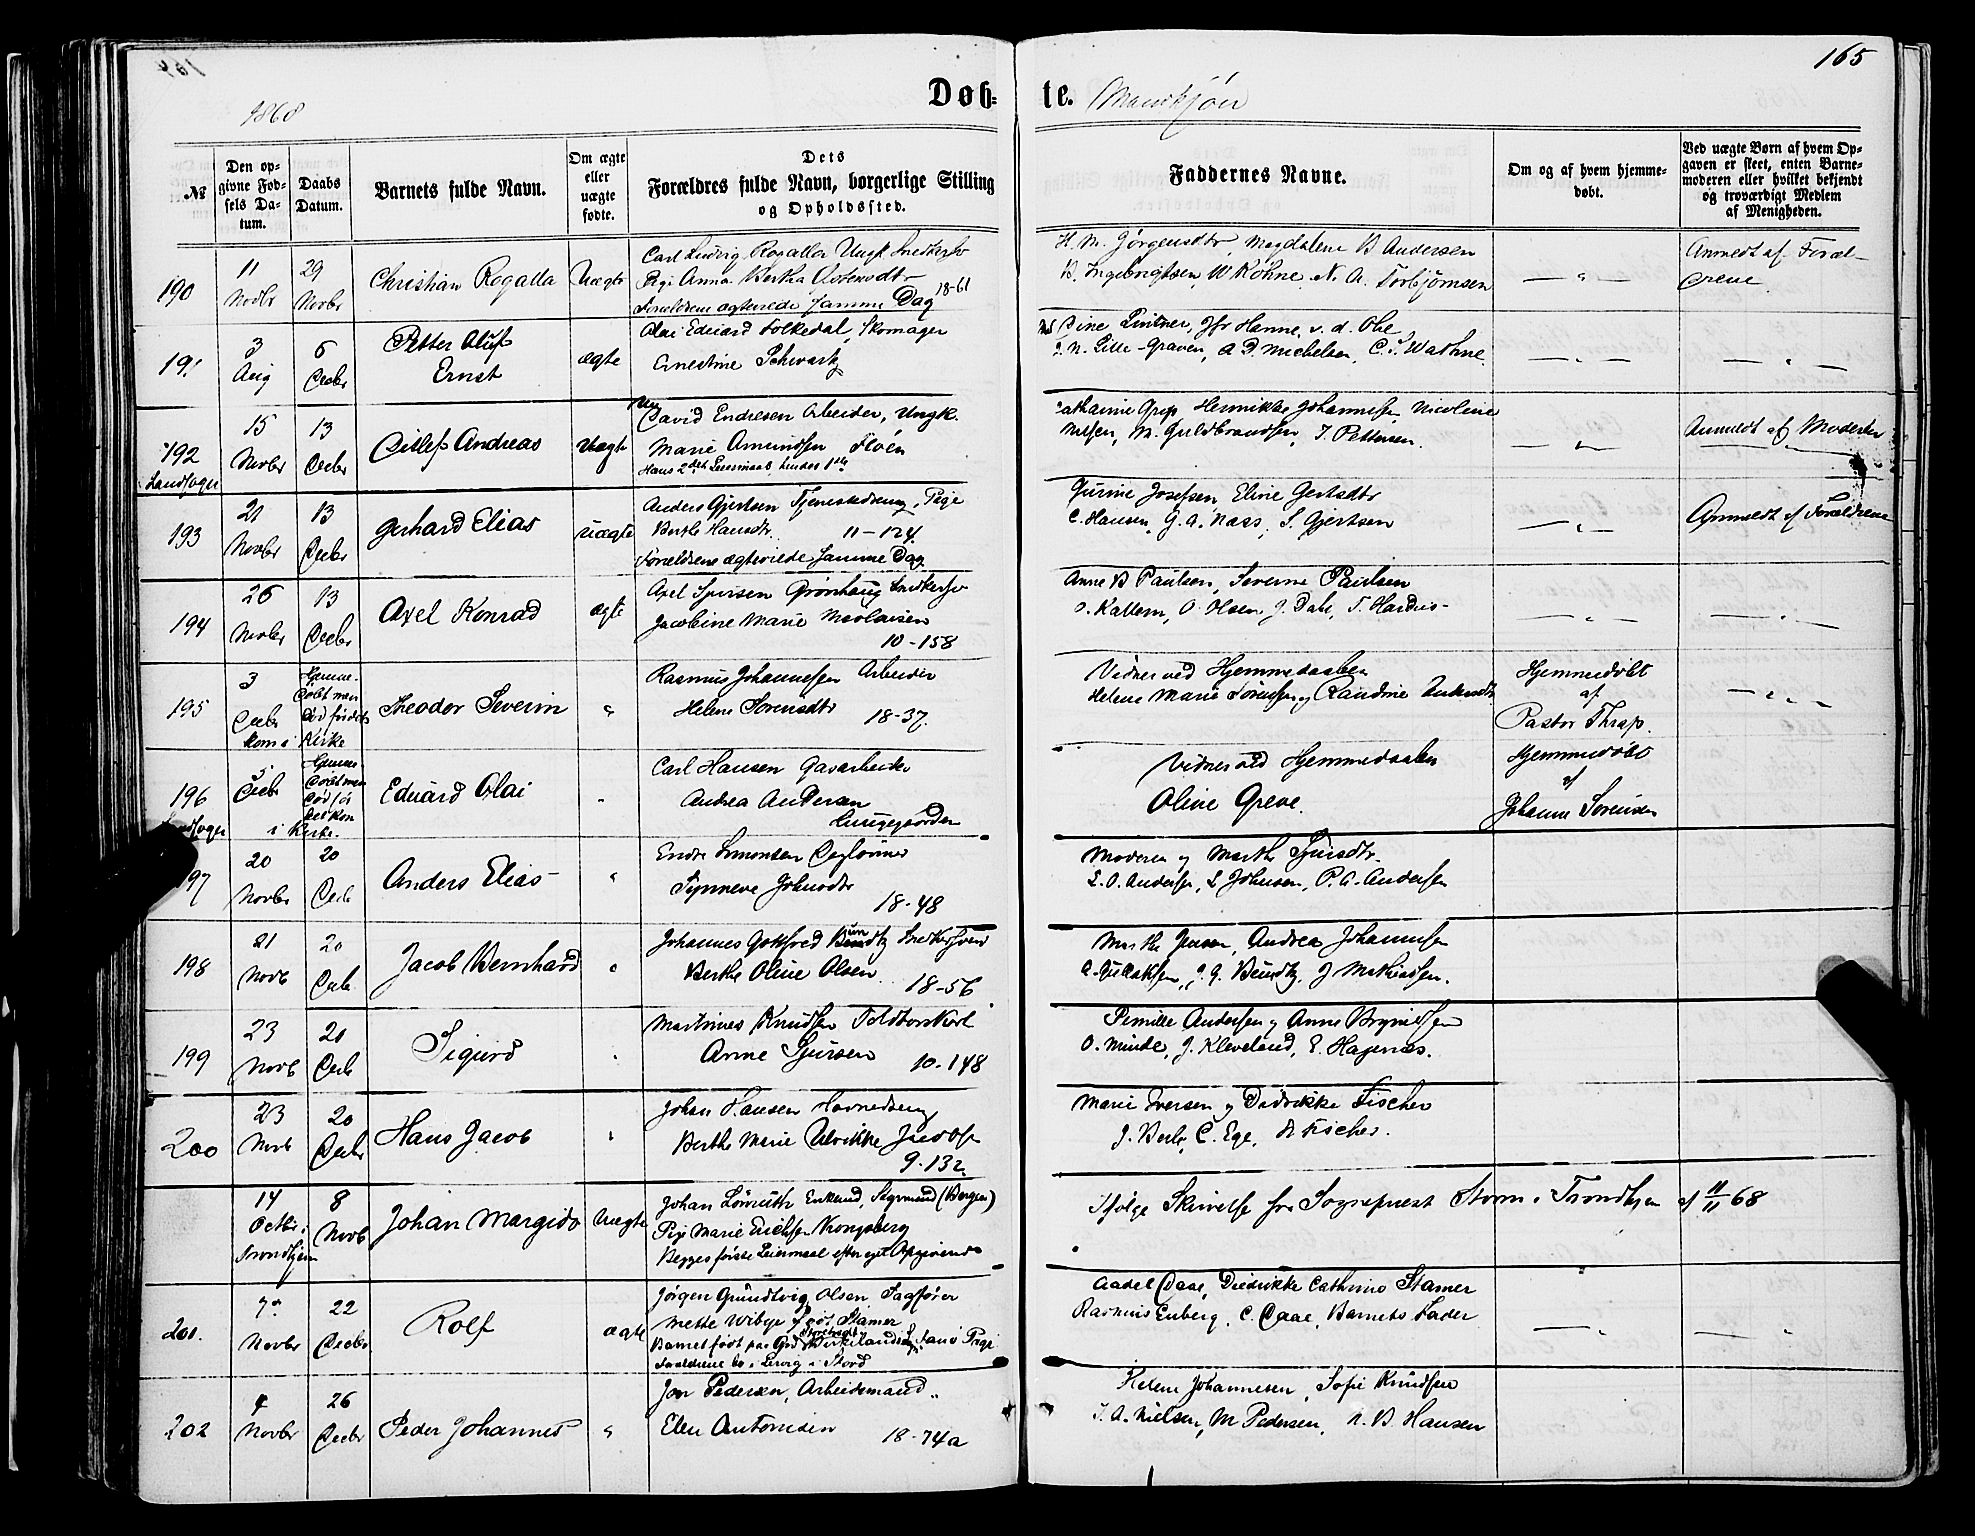 165
1868
Døb- te. Mandkjøn
№
Den opgivne Fødsels Datum.
Daabs Datum.
Barnets fulde Navn.
Om ægte eller uægte fødte.
Dets Forældres fulde Navn, borgerlige Stilling og Opholdssted.
Faddernes Navne.
Om og af hvem hjemmedøbt.
Ved uægte Børn af hvem Opgaven er skeet, enten Barnemoderen eller hvilket bekjendt og troværdigt Medlem af Menigheden.
190
11 Novbr
29 Novbr
Christian Rogalla
Uægte
Carl Ludvig Rogalla Ungk Snedkersv
Pige Anna Bertha
Forældrene ægteviede samme Dag 18-61
H. M. Jørgensdtr, Magdalene B Andersen
B. Ingebrigtsen, W Köhne, N. A. Torbjørnsen
Anmeldt af Forældrene
191
3 Aug
6 Decbr
Petter Oluf
Ernst
ægte
Olai Eduard Folkedal, Skomager
Ernestine Schwartz
Lintner, Jfr Hanne v. d. Ohe
Lille-Graven, A D Michelsen, C. Wathne
192
Landsogn
15 Novbr
13 Decbr
Ditlef Andreas
Uægte
David Endresen Arbeider, Ungk.
Marie Amundsen Fløen
Hans 2det Leiermaal hendes 1ste
Catharine Grip, Henrikke Johannessen, Nicoline
Nilsen, M. Guldbrandsen, J. Pettersen
Anmeldt af Moderen
193
21 Novbr
13 Decbr
Gerhard Elias
uægte
Anders Gjertsen Tjenestedreng, Pige
Berthe Hansdtr. 11-124.
Forældrene ægteviede samme Dag
Gurine Josefsen, Eline Gertsdtr
C. Hansen, G. A. Næss, S. Gjertsen
Anmeldt af Forældrene
194
26 Novbr
13 Decbr
Axel Konrad
ægte
Axel Sjursen Grønhaug Snedkersv
Jacobine Marie Nicolaisen
10-158
Anne B Paulsen, Severine Paulsen
O. Kallem, O. Olsen, J. Dahl, T.
195
3 Decbr
Hjemmedøbt men død førdet kom i Kirke
Theodor Severin
"
Rasmus Johannessen Arbeider
Helene Sørensdtr 18-37.
Vidner ved Hjemmedaaben
Helene Marie Sørensen og Randine
Hjemmedøbt
af
Pastor Thrap.
196
Landsogn
5 Decbr
Hjemmedøbt men død før det kom i Kirke.
Eduard Olai
"
Carl Hansen Gasarbeider
Andrea Andersen
Lungegaarden
Vidner ved Hjemmedaaben
Oline Greve.
Hjemmedøbt
af
Johanne Sørensen
197
20 Novbr
20 Decb
Anders Elias
"
Endre Simonsen
Synneve Johnsdtr
18-48
Moderen og Marthe Sjursdtr.
L. O. Andersen, L Johnsen, P. A. Andersen
198
21 Novb
20 Decb
Jacob Bernhard
"
Johannes Gotfred Bundtz Snedkersvend
Berthe Oline Olsen
18-56
Marthe Jensen, Andrea Johannessen
J. G. Bundtz, J Mathiassen.
199
23 Novb
20 Decb
Sigurd
Martinus Knudsen Toldborskarl
Anne Sjursen 10-148
Pernille Andersen og Anne Brynildsen
O. Minde, J. Kleveland, E. Hagenæs.
200
23 Novb
20 Decbr
Hans Jacob
"
Johan Hansen Havnedreng
Berthe Marie Ulrikke Jacobsen
9-132
Marie Iversen og Didrikke Fischer
J. Berle, C. Ege, Fischer.
14 Octbr
Trondhjem
8 Novb
Johan Margido
Uægte
Johan Enkemd, Styrmand (Bergen)
Pige Marie Erichsen Kongsberg
Begges første Leiermaal efter eget Opgivende
Ifølge Skrivelse fra Sognepræst Storm i Trondhjem af 11/11 68
201.
7de Novbr
22 Decbr
Rolf
ægte
Jørgen Gründtvig Olsen Sagfører
Mette Wibye født Stamer
Barnet født paa
Forældrene bo i Lervig i Stord
Aadel Daae, Diedrikke Cathrine Stamer
Rasmus Enberg, C. Daae, Barnets Fader
202
4 Novbr
26 Decbr
Peder Johannes
"
Jon Pedersen, Arbeidsmand
Elen Antonsen 18-74a
Helene Johannesen, Sofie Knudsen
J. A. Nielsen, M Pedersen, N. B Hansen